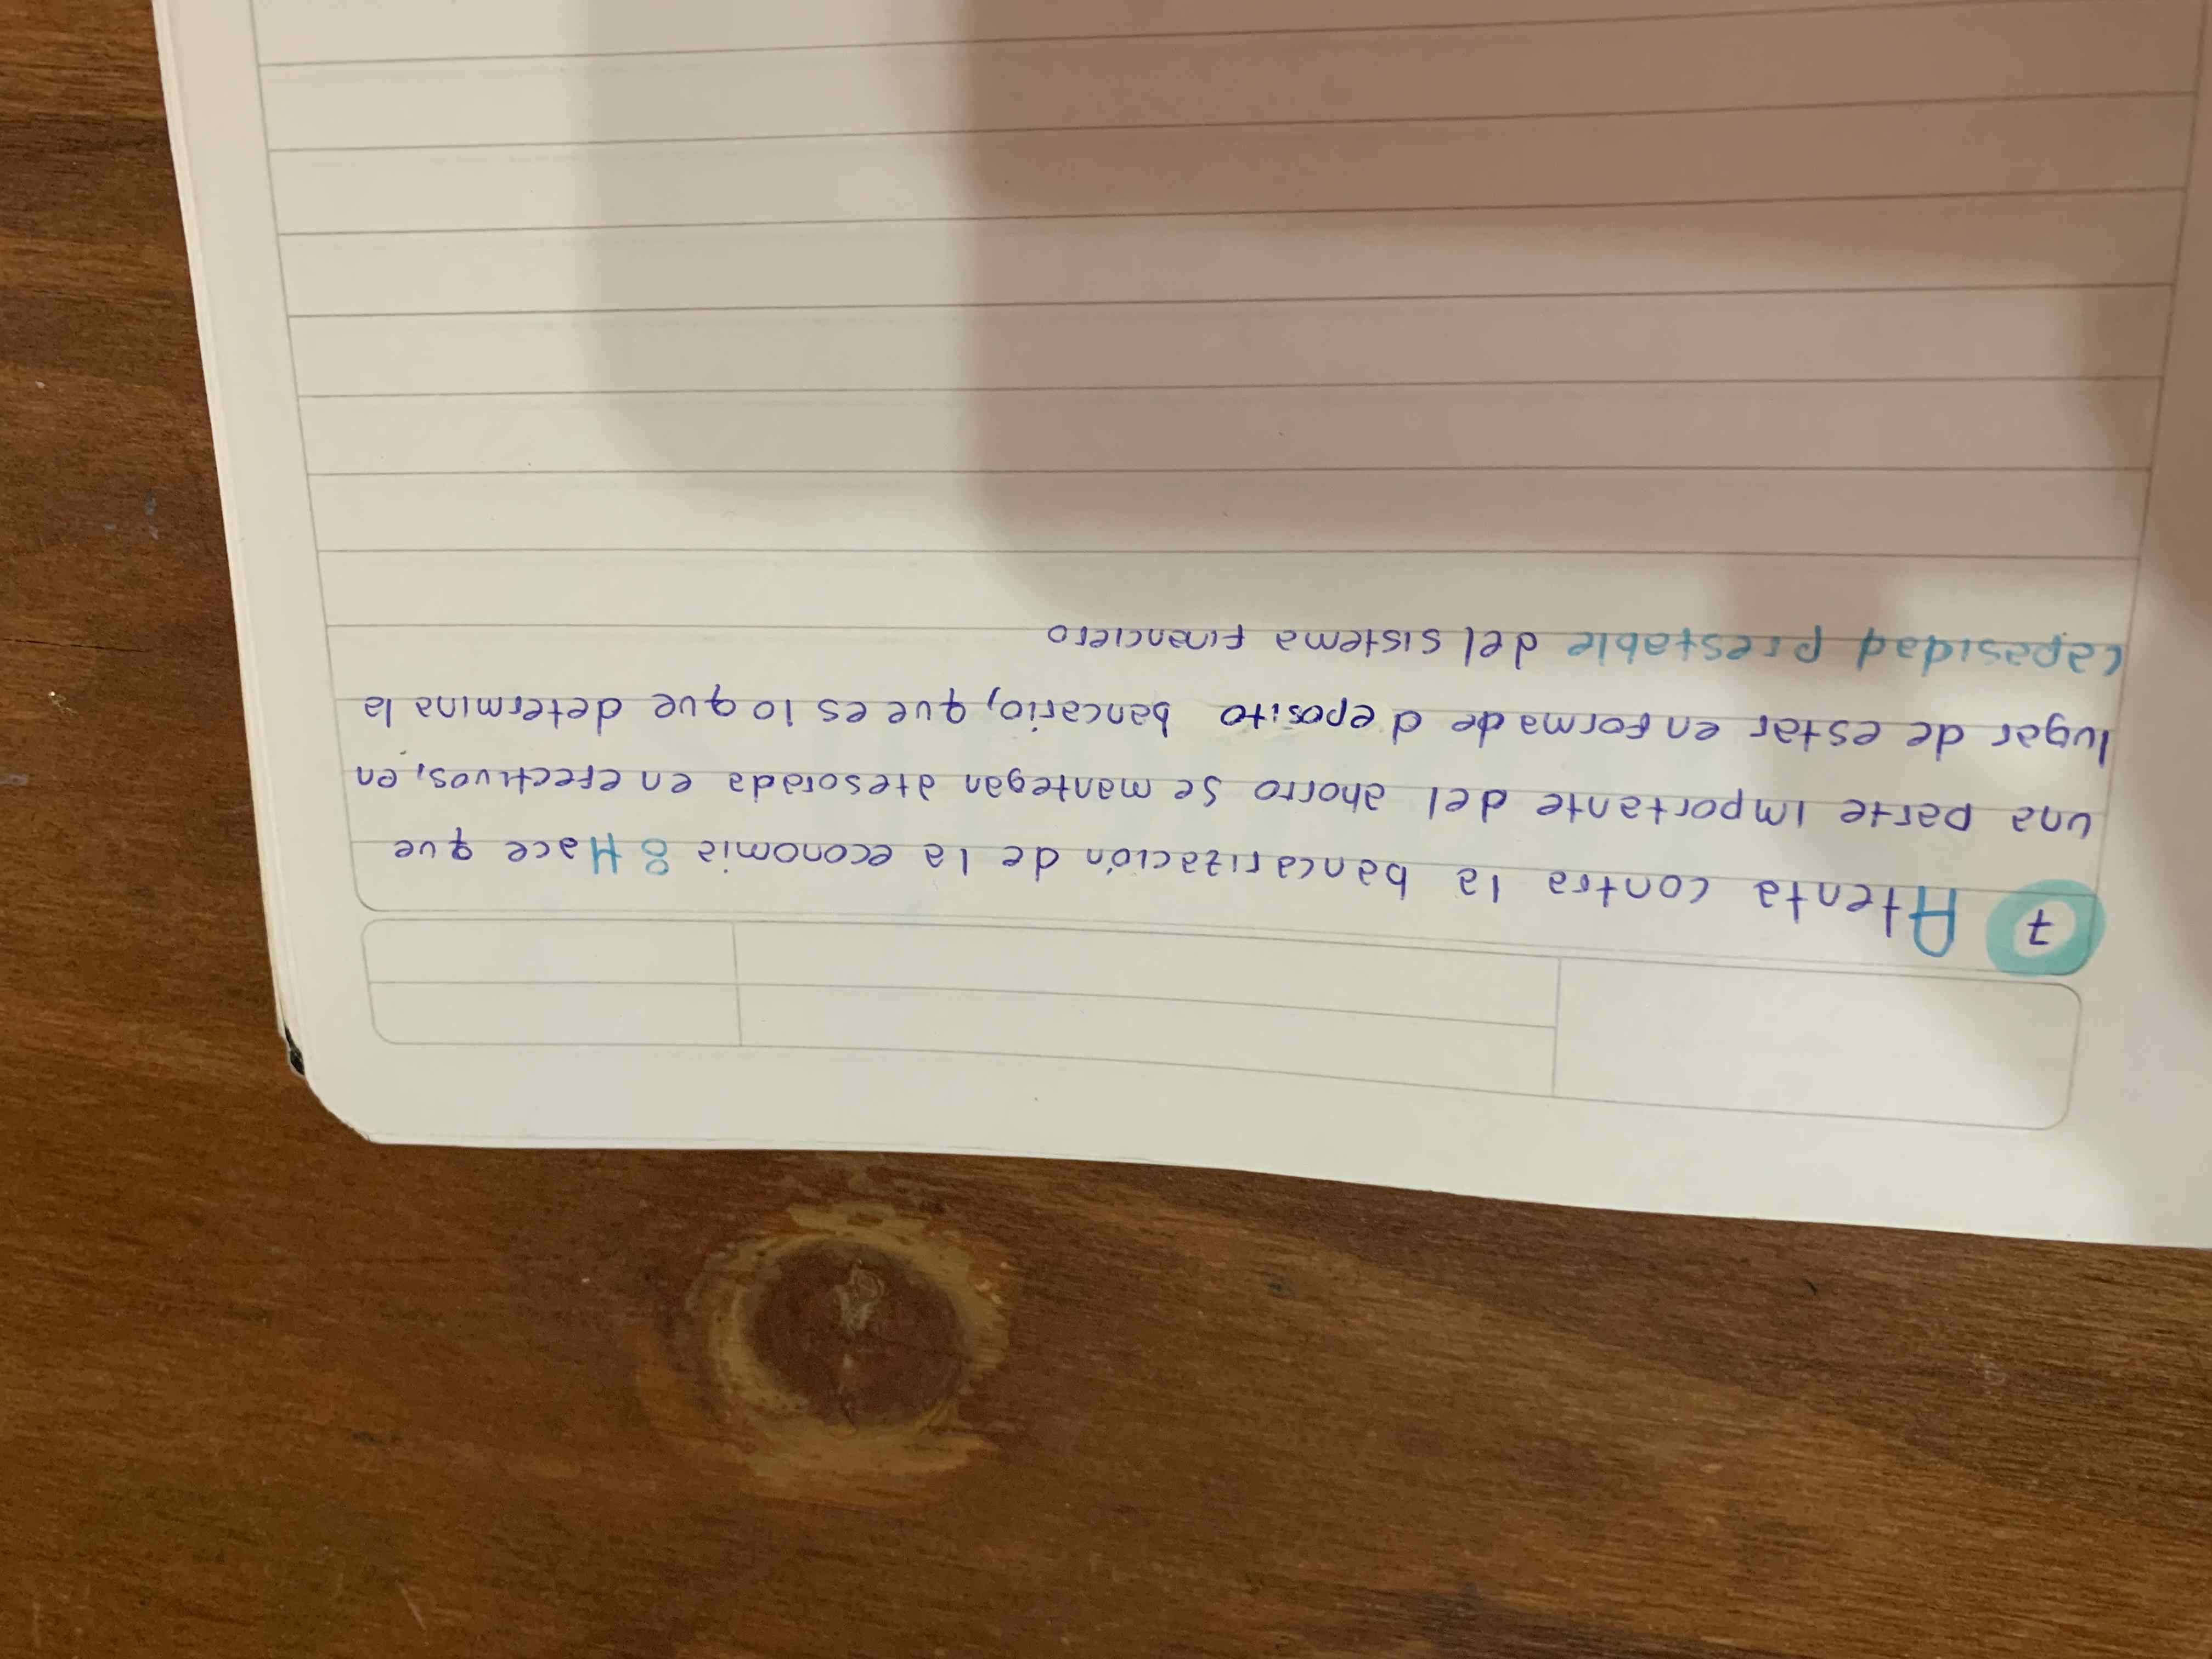 7 Atenta contra la bancarización de la economia 8 Hace que
una parte importante del ahorro se mantegan atesorada en efectivos, en
lugar de estar en forma de deposito bancario, que es lo que determina la
capasidad prestable del sistema financiero